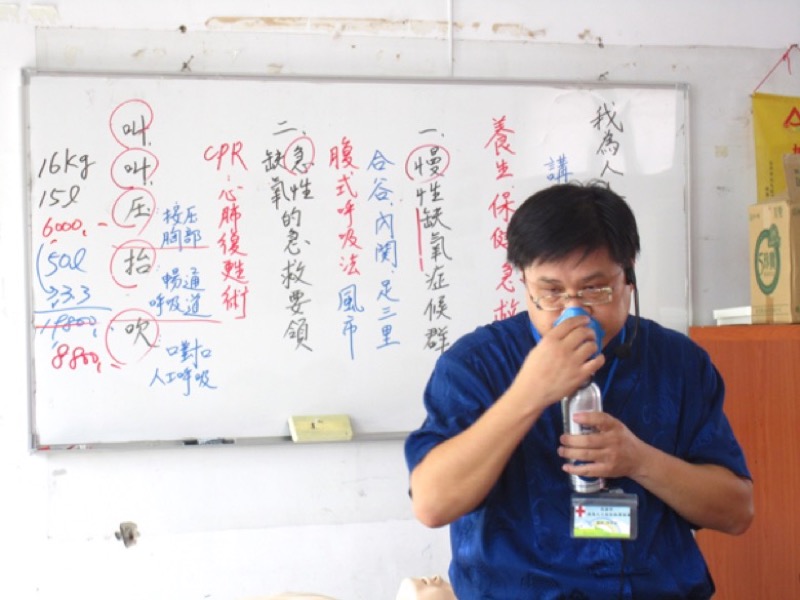 我為人
講
養生保健急救
一.慢性缺氧症候群
合谷.內關.足三里
腹式呼吸法 風市
二.急性缺氧的急救要領
CPR:心肺復甦術
叫.
叫.
压
按压
胸部
抬
暢通
呼吸道
吹
口對口
人工呼吸
16kg
15l
6000,-
150l
333
19800,-
8800,-